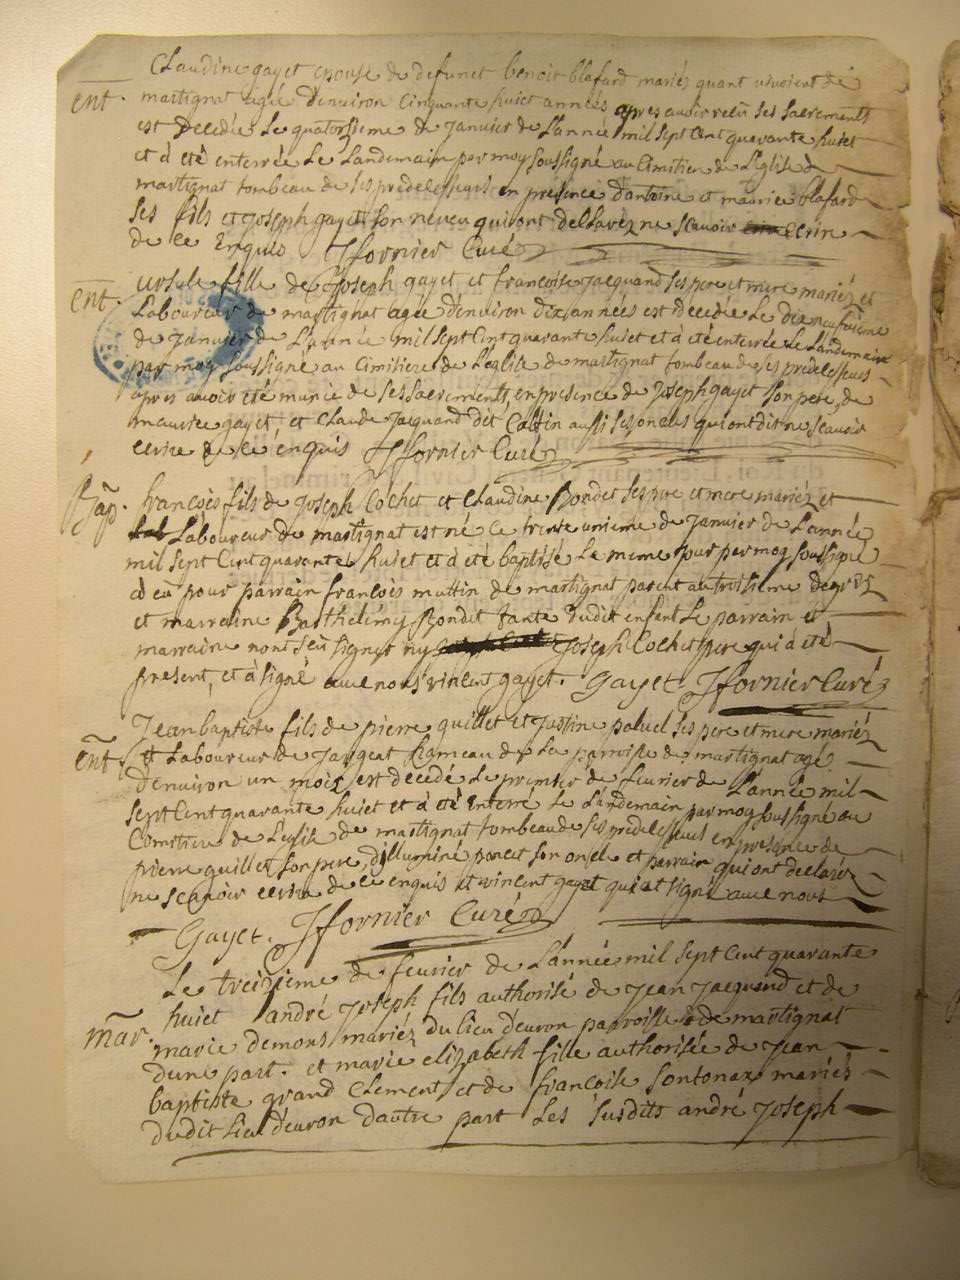 Claudine gayet epouse de defunct benoit blafard mariés quant vivoient de
ent. martignat agée d'environ Cinquante huict années apres avoir recû ses sacrements
est decedée Le quatorsieme de Janvier de L'année mil sept Cent quarante huict
et à été enterrée Le Landemain par moy soussigné au Cimitier de L'eglise de
martignat tombeau de ses predecesseurs en presence d'antoine et maurice blafard
ses fils et Joseph gayet son neveu qui ont desclarez ne scavoir ecrire
de ce Enquis Jfornier Curé
ent. ursule fille de Joseph gayet et francoise Jacquand ses pere et mere mariéz et
Laboureur de martignat agée d'environ dix années est decedée Le dixneufvieme
de Janvier de L'année mil sept Cent quarante huict et à été enterrée Le Landemain
par moy soussigné au Cimitiere de L'eglise de martignat tombeau de ses predecesseurs
apres avoir été munie de ses sacrements en presence de Joseph gayet son pere, de
maurice gayet, et Claude Jacquand dit aussi ses oncles qui ont dit ne scavoir
ecrire de ce enquis Jfornier Curé
Bap. francois fils de Joseph Cochet et Claudine Bondet ses pere et mere mariéz et
Laboureur de martignat est né Ce trente unieme de Janvier de L'année
mil sept Cent quarante huict et à été baptisé Le meme Jour par moy soussigné
à eu pour parrain francois muttin de martignat parent au troisieme degré
et marraine Barthelemy Bondit tante dudit enfent Le parrain et
marraine n'ont sçû signer ny Joseph Cochet pere qui à été
present, et à signé avec nous vincent gayet. Gayet Jfornier Curé
Jean baptiste fils de pierre guillet et Justine paluel ses pere et mere mariéz
ent. et Laboureur de Jargeat hameau de La parroisse de martignat agé
d'environ un mois est decedé Le premier de fevrier de L'année mil
sept Cent quarante huict et à été Enterré Le Landemain par moy soussigné au
Cimitiere de L'eglise de martignat tombeau de ses predecesseurs en presence de
pierre guillet son pere, d'illuminé poncet son oncle et parrain qui ont declaréz
ne scavoir ecrire de ce enquis et vincent gayet qui at signé avec nous
Gayet. Jfornier Curé
Le treizieme de fevrier de L'année mil sept Cent quarante
huict andré Joseph fils authorisé de Jean Jacquand et de
mar. marie demons mariéz du lieu d'evron parroisse de martignat
d'une part. et marie elizabeth fille authorisée de Jean
baptiste grand Clement et de francoise sontonax mariés
dudit lieu d'evron d'autre part Les susdits andré Joseph